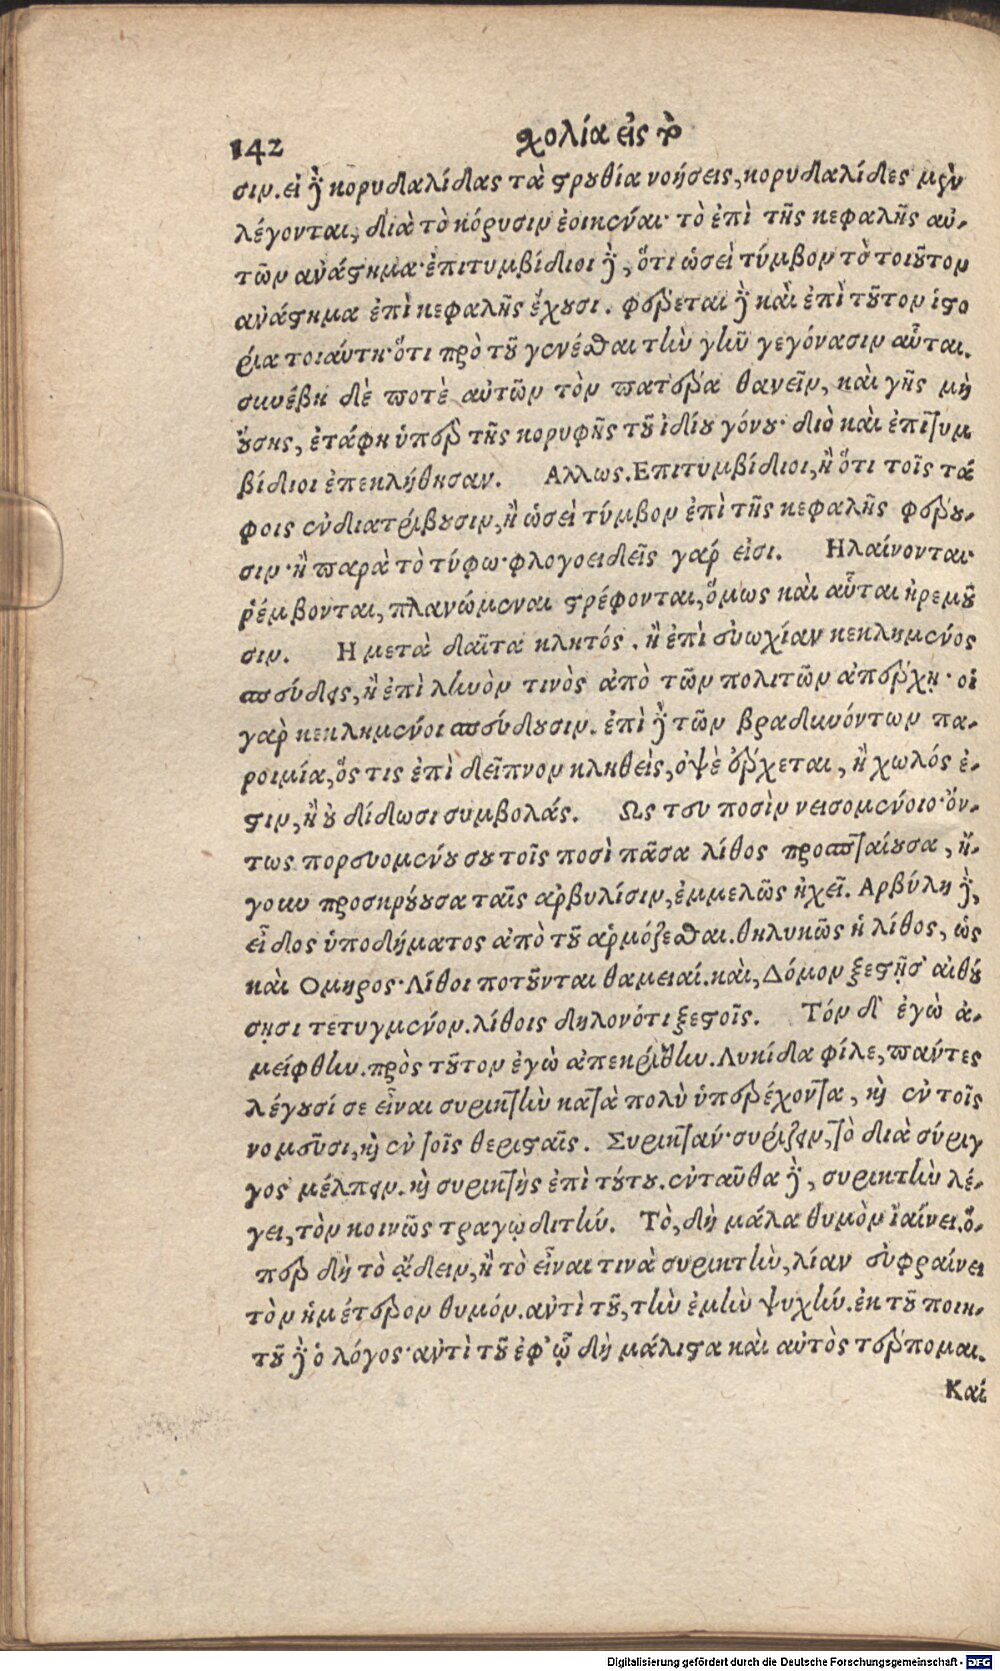 142 χολία εἰς τ̀
σιν. εἰ δὲ κορυδαλίδας τὰ στρουθία νοήσεις, κορυδαλίδες μὲν
λέγονται, διὰ τὸ κόρυσιν ἐοικέναι· τὸ ἐπὶ τῆς κεφαλῆς αὐ-
τῶν ἀνάστημα· ἐπιτυμβίδιοι δὲ, ὅτι ὡσεὶ τύμβον τὸ τοιοῦτον
ἀνάστημα ἐπὶ κεφαλῆς ἔχουσι. φέρεται δὲ καὶ ἐπὶ τοῦτον ἱστο
ρία τοιαύτη· ὅτι πρὸ τοῦ γενέσθαι τὴν γῆν γεγόνασιν αὗται.
συνέβη δὲ ποτὲ αὐτῶν τὸν πατέρα θανεῖν, καὶ γῆς μὴ
οὔσης, ἐτάφη ὑπὲρ τῆς κορυφῆς τοῦ ἰδίου γόνου· διὸ καὶ ἐπιτυμ
βίδιοι ἐπεκλήθησαν. Αλλως. Επιτυμβίδιοι, ἢ ὅτι τοῖς τά
φοις ἐνδιατρίβουσιν, ἢ ὡσεὶ τύμβον ἐπὶ τῆς κεφαλῆς φέρου-
σιν· ἢ παρὰ τὸ τύφω· φλογοειδεῖς γάρ εἰσι. Ηλαίνονται·
ῥέμβονται, πλανώμεναι στρέφονται, ὅμως καὶ αὗται ἠρεμοῦ
σιν. Η μετὰ δαῖτα κλητός. ἢ ἐπὶ εὐωχίαν κεκλημένος
σπεύδεις, ἢ ἐπὶ ληνὸν τινὸς ἀπὸ τῶν πολιτῶν ἀπέρχῃ· οἱ
γὰρ κεκλημένοι σπεύδουσιν. ἐπὶ δὲ τῶν βραδυνόντων πα-
ροιμία, ὅς τις ἐπὶ δεῖπνον κληθεὶς, ὀψὲ ἔρχεται, ἢ χωλός ἐ-
στιν, ἢ οὐ δίδωσι συμβολάς. Ως τευ ποσὶν νεισομένοιο· ὄν-
τως πορευομένου σου τοῖς ποσὶ πᾶσα λίθος προσπταίουσα, ἤ-
γουν προσκρούουσα ταῖς ἀρβυλίσιν, ἐμμελῶς ἠχεῖ. Αρβύλη δὲ,
εἶδος ὑποδήματος ἀπὸ τοῦ ἁρμόζεσθαι. θηλυκῶς ἡ λίθος, ὡς
καὶ Ομηρος· Λίθοι ποτοῦνται θαμειαί. καὶ, Δόμον ξεστῇσ' αἰθού
σῃσι τετυγμένον. λίθοις δηλονότι ξεστοῖς. Τόν δ' ἐγὼ ἀ-
μείφθην. πρὸς τοῦτον ἐγὼ ἀπεκρίθην. Λυκίδα φίλε, πάντες
λέγουσί σε εἶναι συρικτὴν κατὰ πολὺ ὑπερέχοντα, καὶ ἐν τοῖς
νομεῦσι, καὶ ἐν τοῖς θερισταῖς. Συρικτάν· συρίζειν, τὸ διὰ σύριγ
γος μέλπειν. καὶ συρικτὴς ἐπὶ τούτου. ἐνταῦθα δὲ, συρικτὴν λέ-
γει, τὸν κοινῶς τραγῳδιτήν. Τὸ, δὴ μάλα θυμὸν ἰαίνει. ὅ-
περ δὴ τὸ ᾄδειν, ἢ τὸ εἶναι τινὰ συρικτὴν, λίαν εὐφραίνει
τὸν ἡμέτερον θυμόν. ἀντὶ τοῦ, τὴν ἐμὴν ψυχήν. ἐκ τοῦ ποιη-
τοῦ δὲ ὁ λόγος· ἀντὶ τοῦ ἐφ' ᾧ δὴ μάλιστα καὶ αὐτὸς τέρπομαι.
Καί
Digitalisierung gefördert durch die Deutsche Forschungsgemeinschaft - DFG